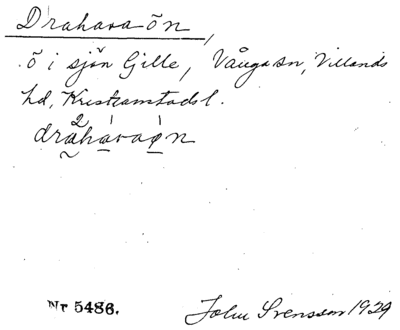 Draharaön,
ö i sjön Gille, Vånga sn, Villands
hd, Kristianstads l.
dråharaøn
Nr 5486.
John Svensson 1929